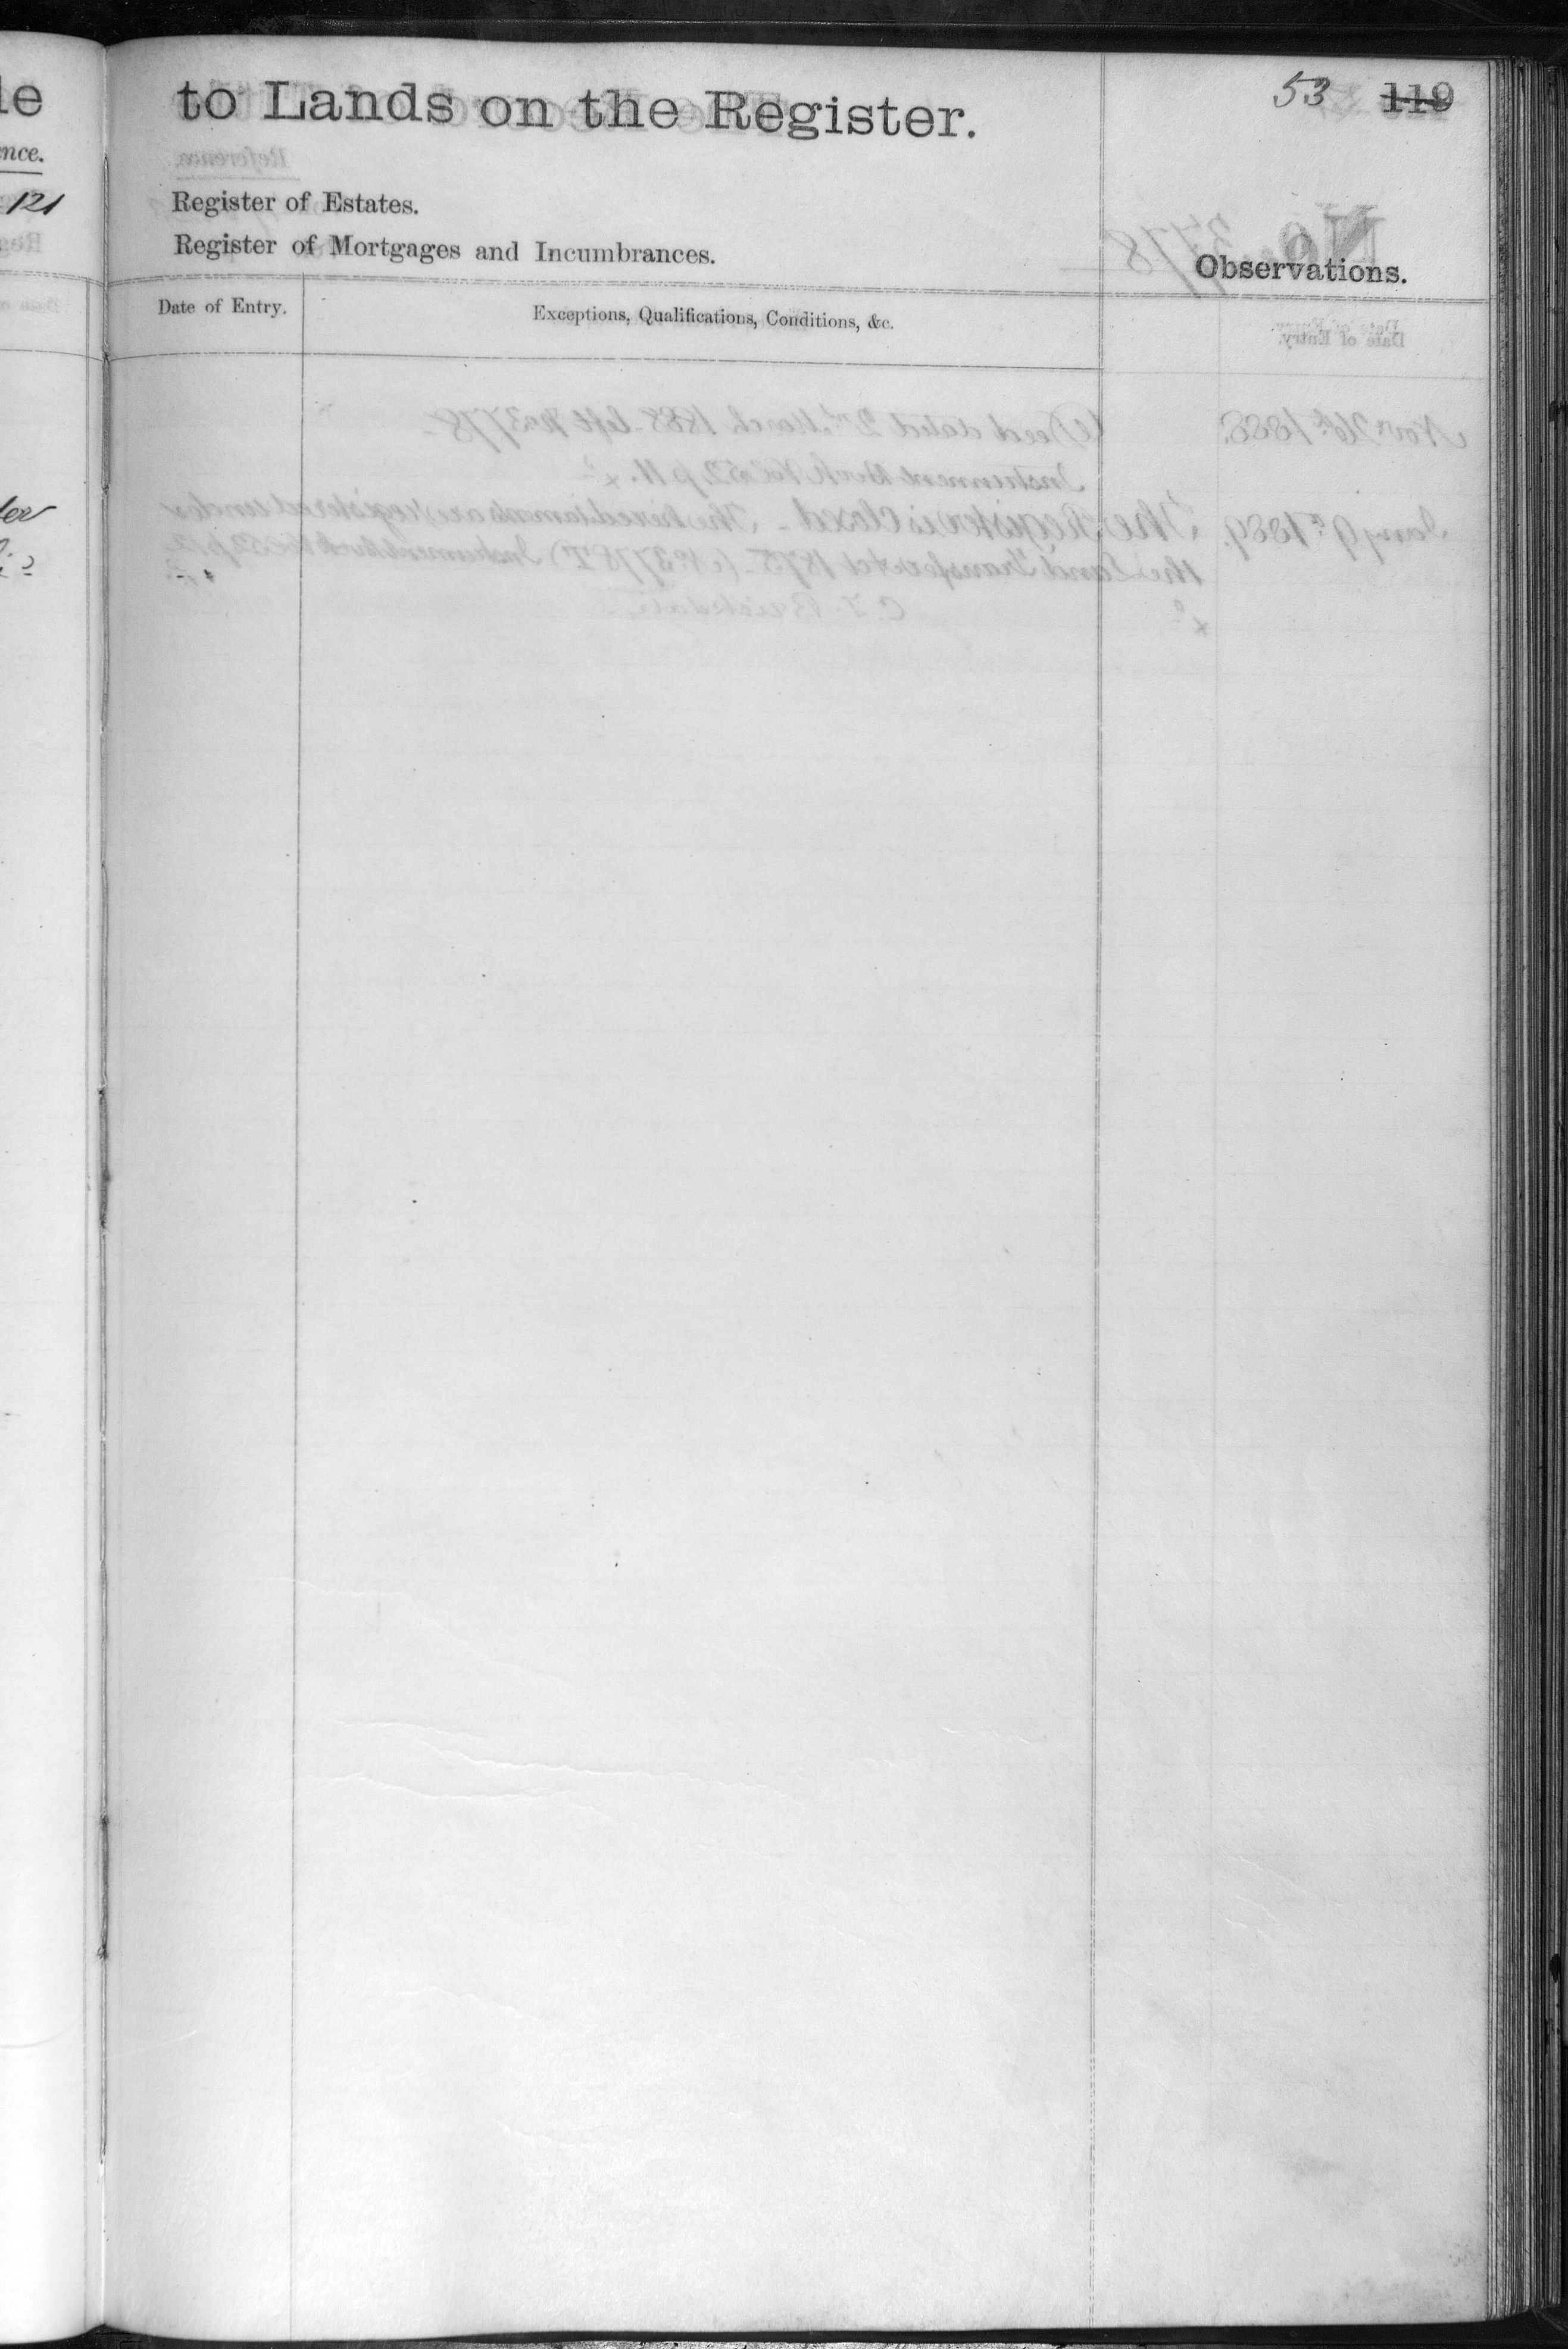 le
to Lands on the Register.
53 119
nce.
121
Register of Estates.
Register of Mortgages and Incumbrances.
Observations.
Date of Entry.
Exceptions, Qualifications, Conditions, &c.